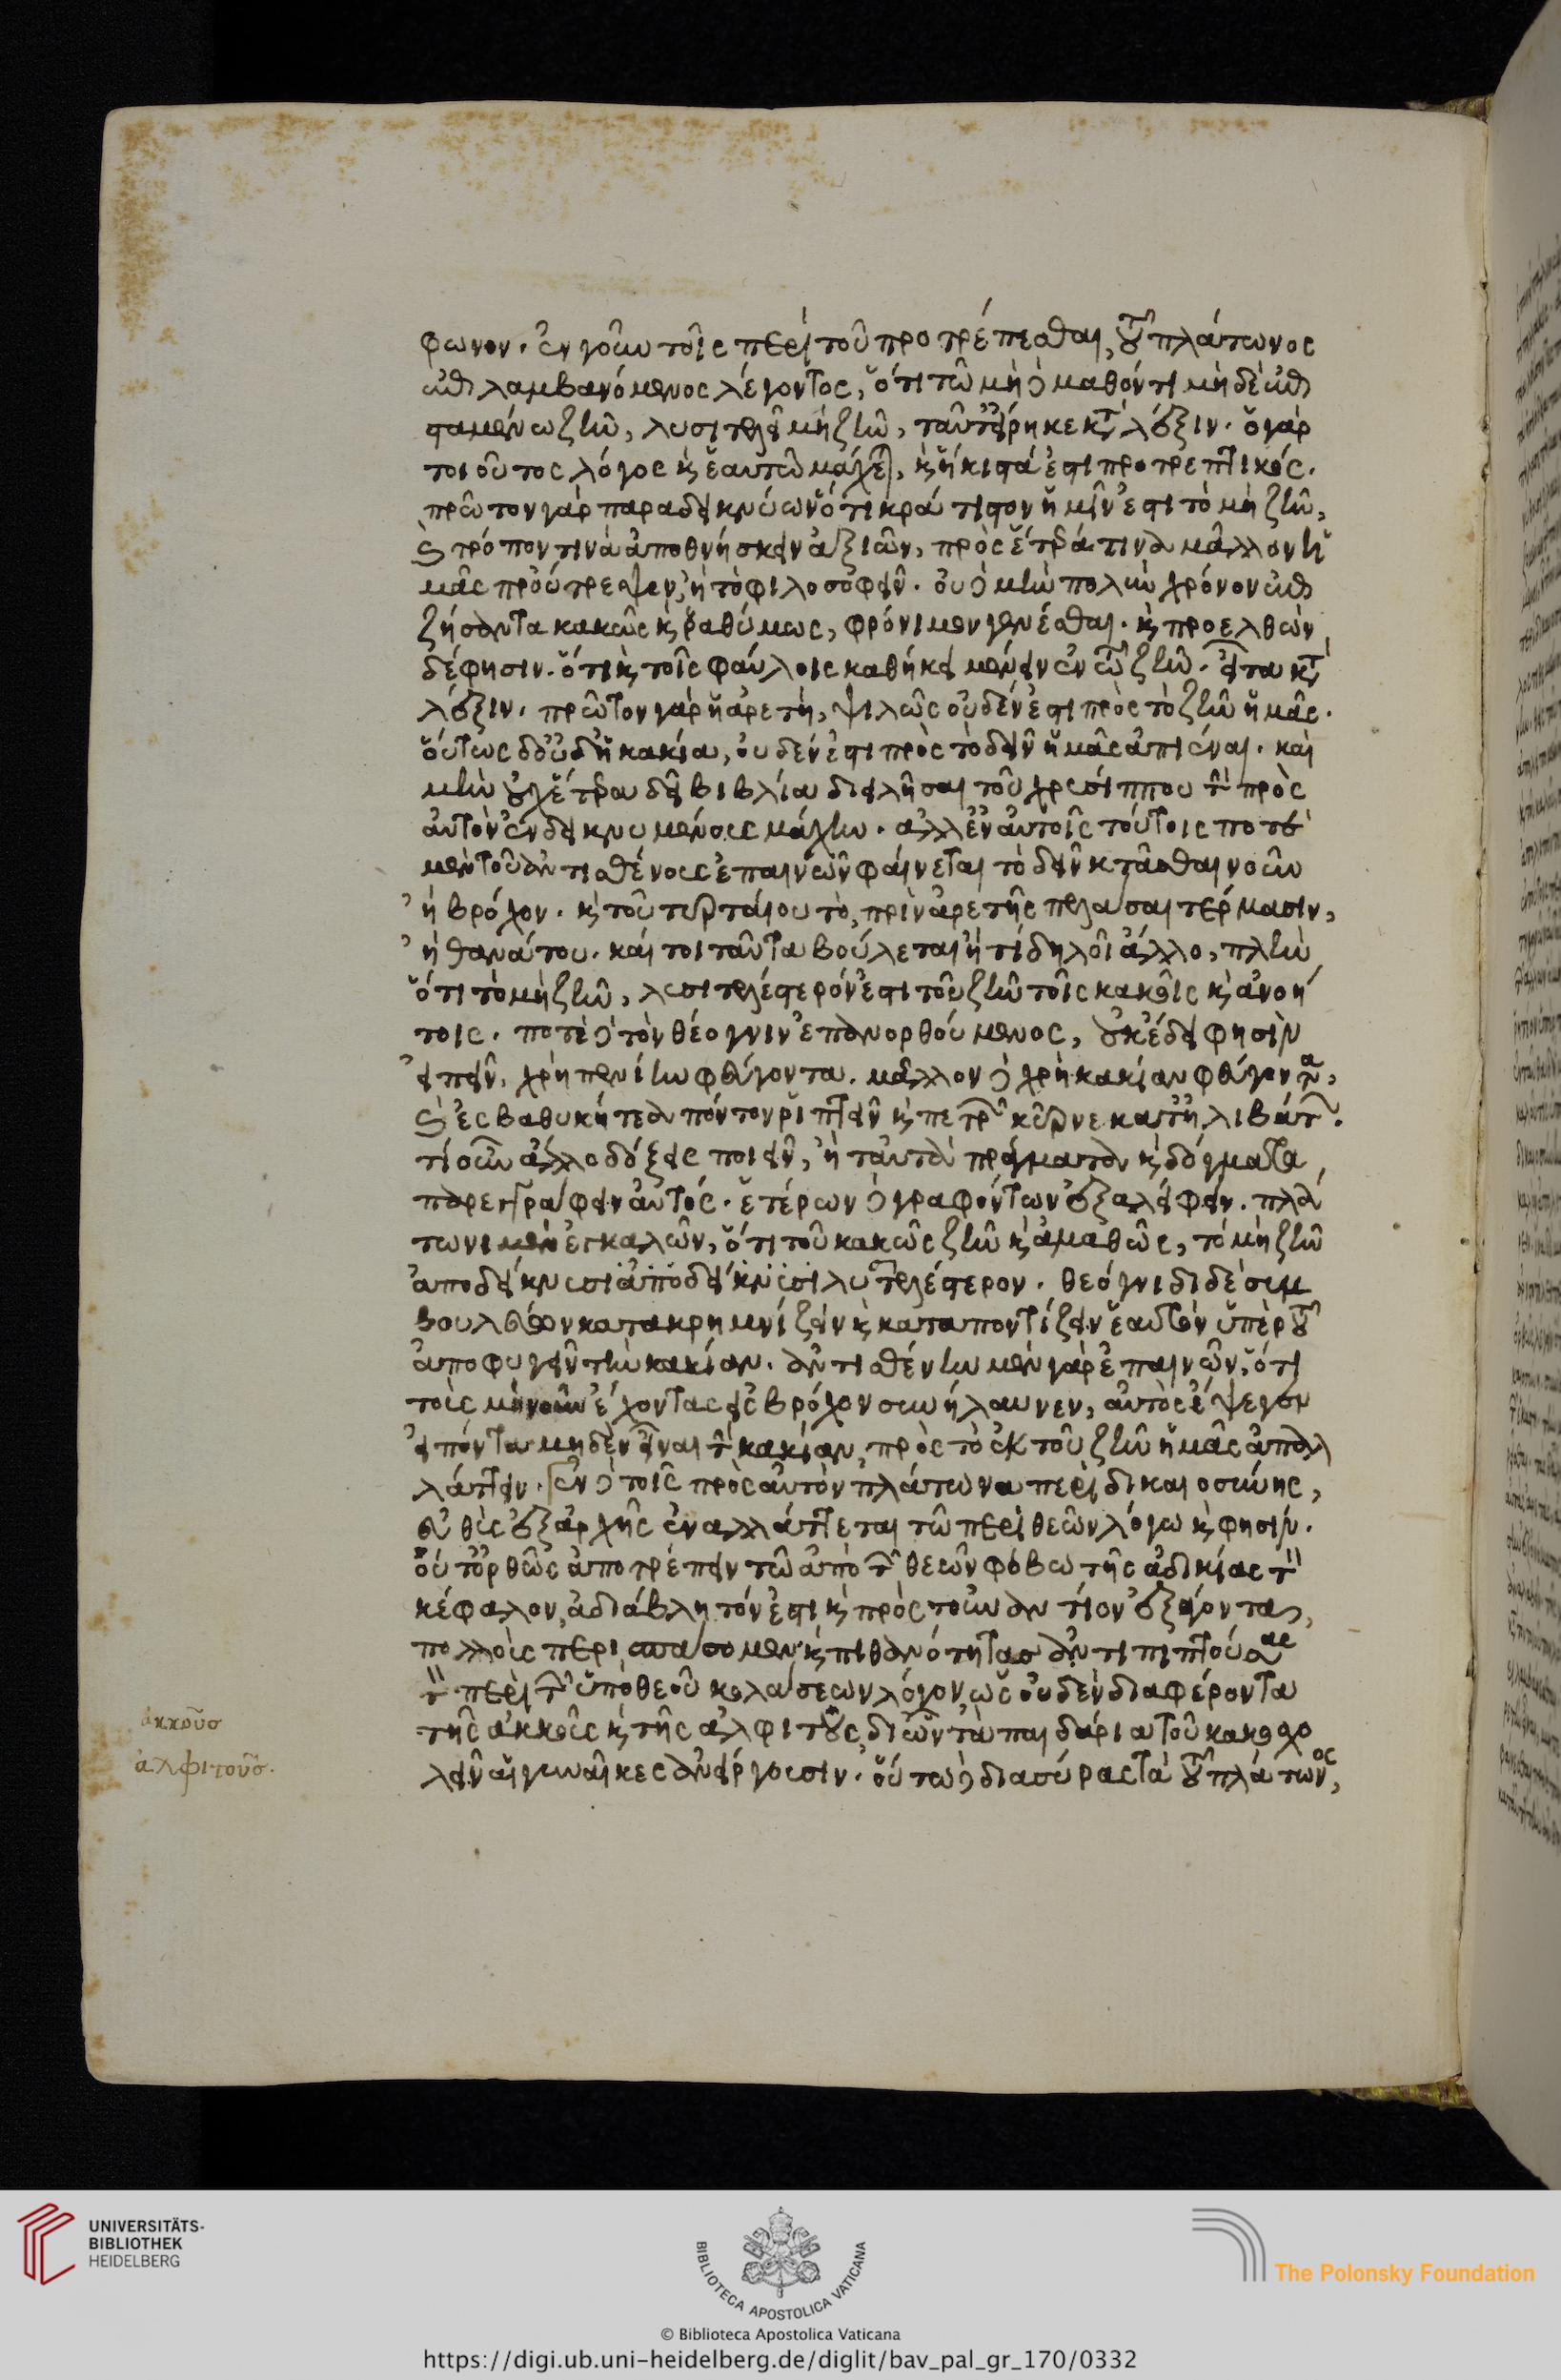 φωνον. ἐν γοῦν τοῖς περὶ τοῦ προτρέπεσθαι, τοῦ πλάτωνος
ἐπιλαμβανόμενος λέγοντος, ὅτι τῷ μὴ δὲ μαθόντι μηδὲ ἐπι
σταμένω ζῆν, λυσιτελεῖ μὴ ζῆν, ταῦτ' εἴρηκε κατὰ λέξιν. ὁ γὰρ
τοιοῦτος λόγος καὶ ἑαυτῷ μάχεται, καὶ ἥκιστά ἐστι προτρεπτικός.
πρῶτον γὰρ παραδεικνύων ὅτι κράτιστον ἡμῖν ἐστι τὸ μὴ ζῆν,
καὶ τρόπον τινὰ ἀποθνήσκειν ἀξιῶν, πρὸς ἕτερά τινα μᾶλλον ἡ
μᾶς προὔτρεψεν, ἢ τὸ φιλοσοφεῖν. οὐ δὲ μὴν πολὺν χρόνον ἐπι
ζήσαντα κακῶς καὶ ῥαθύμως, φρόνιμον γενέσθαι. καὶ προελθὼν
δέ φησιν. ὅτι καὶ τοῖς φαύλοις καθήκει μένειν ἐν τῷ ζῆν. εἶτα κατὰ
λέξιν. πρῶτον γὰρ ἡ ἀρετὴ, ψιλῶς οὐδέν ἐστι πρὸς τὸ ζῆν ἡμᾶς.
οὕτως δ' οὐδ' ἡ κακία, οὐδέν ἐστι πρὸς τὸ δεῖν ἡμᾶς ἀπιέναι. καὶ
μὴν οὐχ ἕτερα δεῖ βιβλία διειλῆσαι τοῦ χρυσίππου τὴν πρὸς
αὐτὸν ἐνδεικνυμένους μάχην. ἀλλ' ἐν αὐτοῖς τούτοις ποτὲ
μὲν τοῦ ἀντισθένους ἐπαινῶν φαίνεται τὸ δεῖν κτᾶσθαι νοῦν
ἢ βρόχον. καὶ τοῦ τυρταίου τὸ, πρὶν ἀρετῆς πελάσαι τέρμασιν,
ἢ θανάτου. καί τοι ταῦτα βούλεται ἢ τί δηλοῖ ἄλλο, πλὴν
ὅτι τὸ μὴ ζῆν, λυσιτελέστερόν ἐστι τοῦ ζῆν τοῖς κακοῖς καὶ ἀνοή
τοις. ποτὲ δὲ τὸν θέογνιν ἐπανορθούμενος, οὐκ ἔδει φησὶν
εἰπεῖν, χρὴ πενίην φεύγοντα. μᾶλλον δὲ χρὴ κακίαν φεύγοντα,
καὶ ἐς βαθυκήτεα πόντον ῥιπτεῖν καὶ πετρῶν κύρνε κατ' ἠλιβάτων.
τί οὖν ἄλλο δόξειε ποιεῖν, ἢ ταὐτὰ πράγματα καὶ δόγματα
παρεγγράφειν αὐτός. ἑτέρων δὲ γραφόντων ἐξαλείφειν. πλά
τωνι μὲν ἐγκαλῶν, ὅτι τοῦ κακῶς ζῆν καὶ ἀμαθῶς, τὸ μὴ ζῆν
ἀποδείκνυσι ἀποδείκνυσι λυσιτελέστερον. θεόγνιδι δὲ συμ
βουλεύων κατακρημνίζειν καὶ καταποντίζειν ἑαυτὸν ὑπὲρ τοῦ
ἀποφυγεῖν τὴν κακίαν. ἀντισθένην μὲν γὰρ ἐπαινῶν, ὅτι
τοὺς μὴ νοῦν ἔχοντας εἰς βρόχον συνήλαυνεν, αὐτὸς ἔψεγεν
εἰπόντα μηδὲν εἶναι τὴν κακίαν, πρὸς τὸ ἐκ τοῦ ζῆν ἡμᾶς ἀπαλ
λάττειν. ἐν δὲ τοῖς πρὸς αὐτὸν πλάτωνα περὶ δικαιοσύνης,
εὐθὺς ἐξ ἀρχῆς ἐναλλάττεται τῷ περὶ θεῶν λόγω καὶ φησίν.
οὔτ' ὀρθῶς ἀποτρέπειν τῷ ἀπὸ τῶν θεῶν φόβω τῆς ἀδικίας τὸν
κέφαλον, ἀδιάβλητόν ἐστι καὶ πρὸς τοὐναντίον ἐξάγοντας,
πολλοὺς περισπασομεν καὶ πιθανότητας ἀντιπιπτούσας
τὸν περὶ τῶν ὑπὸ θεοῦ κολάσεων λόγον, ὡς οὐδὲν διαφέροντα
τῆς ἀκκοῦς καὶ τῆς ἀλφιτοῦς, δι' ὧν τὰ παιδάρια τοῦ κακοσχο
λεῖν αἱ γυναῖκες ἀνείργουσιν. οὕτω δὲ διασύρας τὰ τοῦ πλάτωνος,
ἀκκοῦσ
ἀλφιτοῦσ.
UNIVERSITÄTS-
BIBLIOTHEK
HEIDELBERG
BIBLIOTECA APOSTOLICA VATICANA
The Polonsky Foundation
© Biblioteca Apostolica Vaticana
https://digi.ub.uni-heidelberg.de/diglit/bav_pal_gr_170/0332